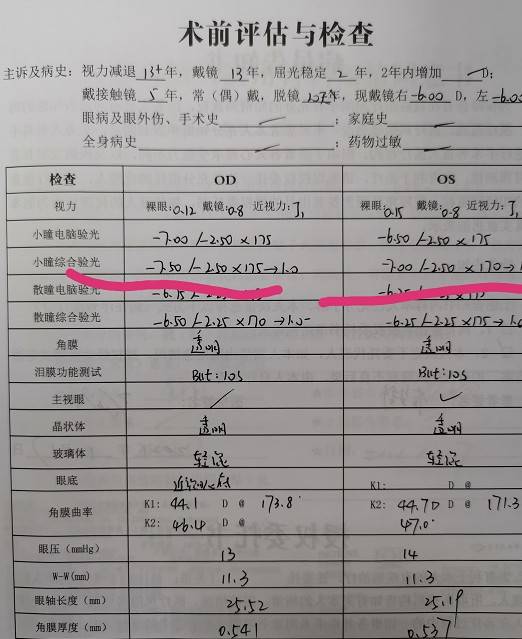 术前评估与检查
主诉及病史:视力减退 13+ 年,戴镜 13 年,屈光稳定 2 年,2年内增加 — D;
戴接触镜 5 年,常(偶)戴,脱镜 年,现戴镜右 -6.00 D,左 -6.00
眼病及眼外伤、手术史 ;家庭史
全身病史 ;药物过敏
检查 OD OS
视力 裸眼:0.12 戴镜:0.8 近视力:J1 裸眼:0.15 戴镜:0.8 近视力:J1
小瞳电脑验光 -7.00 /-2.50 × 175 -6.50 /-2.50 × 175
小瞳综合验光 -7.50 /-2.50 × 175→1.0 -7.00 /-2.50 × 170→1.
散瞳电脑验光
散瞳综合验光 -6.50 /-2.25 × 170 →1.0- -6.25 /-2.25 × 175→1.0
角膜 透明 透明
泪膜功能测试 But:10s But:10s
主视眼 ✓
晶状体 透明 透明
玻璃体 轻混 轻混
眼底
角膜曲率 K1: 44.1 D @ 173.8 K1: 44.70 D @ 171.3
K2: 46.4 D @ K2: 47.0 D @
眼压(mmHg) 13 14
W-W(mm) 11.3 11.3
眼轴长度(mm) 25.52 25.19
角膜厚度(mm) 0.541 0.537